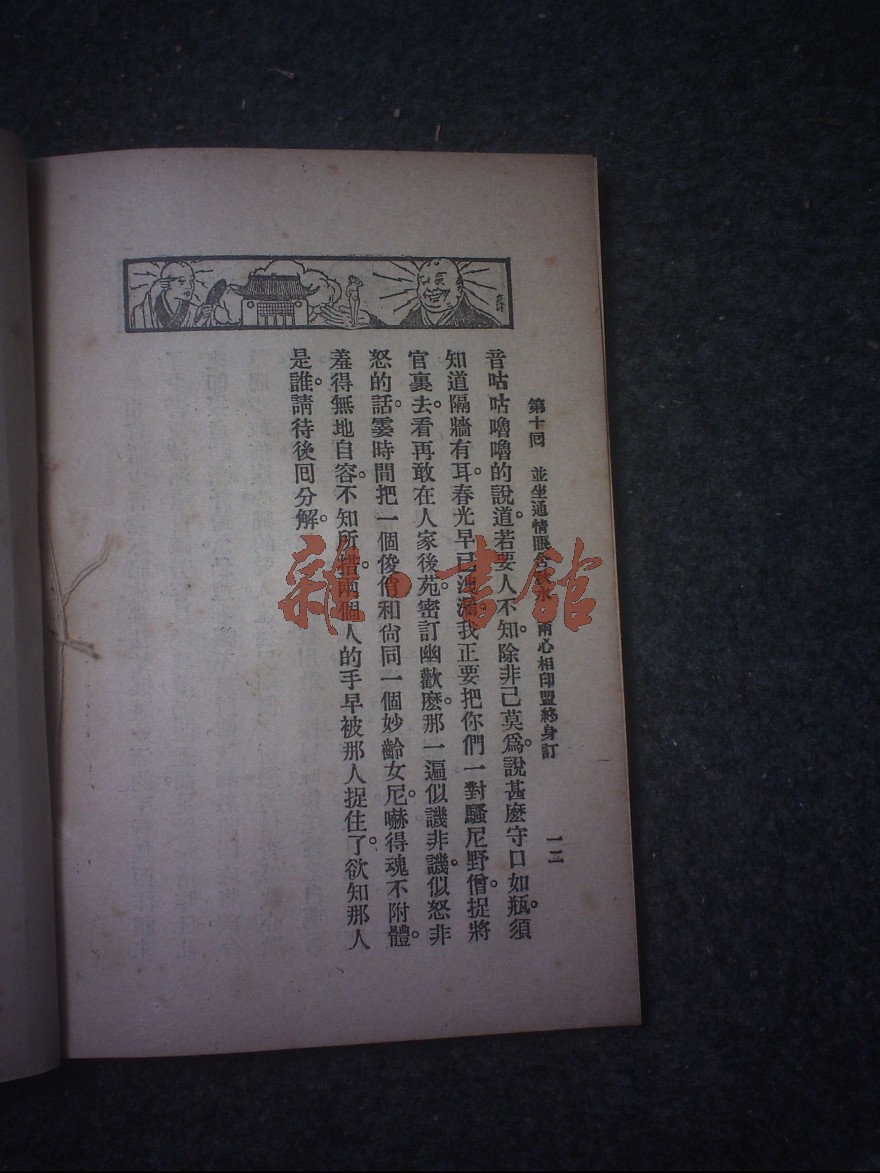 第十回 並坐通情眼含秋水 兩心相印盟終身訂
一二
音咕咕嚕嚕的說道。若要人不知。除非己莫爲。說甚麽守口如瓶。須
知道隔牆有耳。春光早已洩漏。我正要把你們一對騷尼野僧。捉將
官裏去。看再敢在人家後苑。密訂幽歡麽。那一遍似譏非譏。似怒非
怒的話。霎時間把一個俊俏和尙。同一個妙齡女尼。嚇得魂不附體。
羞得無地自容。不知所措。兩個人的手。早被那人捉住了。欲知那人
是誰。請待後囘分解。
雜·書館